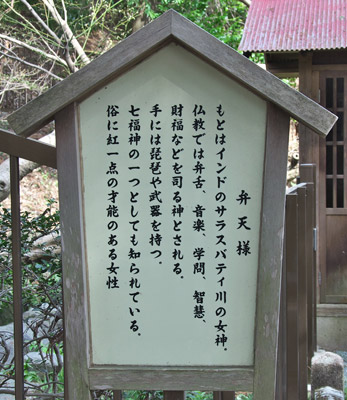 弁天様
もとはインドのサラスバティ川の女神．
仏教では弁舌、音楽、学問、智慧、
財福などを司る神とされる．
手には琵琶や武器を持つ．
七福神の一つとしても知られている．
俗に紅一点の才能のある女性